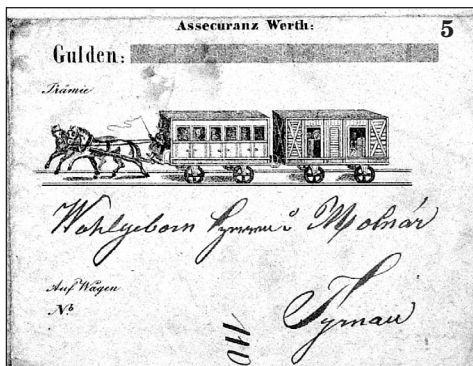 Assecuranz Werth:
5
Gulden:
Prämie
Wohlgeborn Molnár
Auf Wagen
Nº
Tyrnau
110